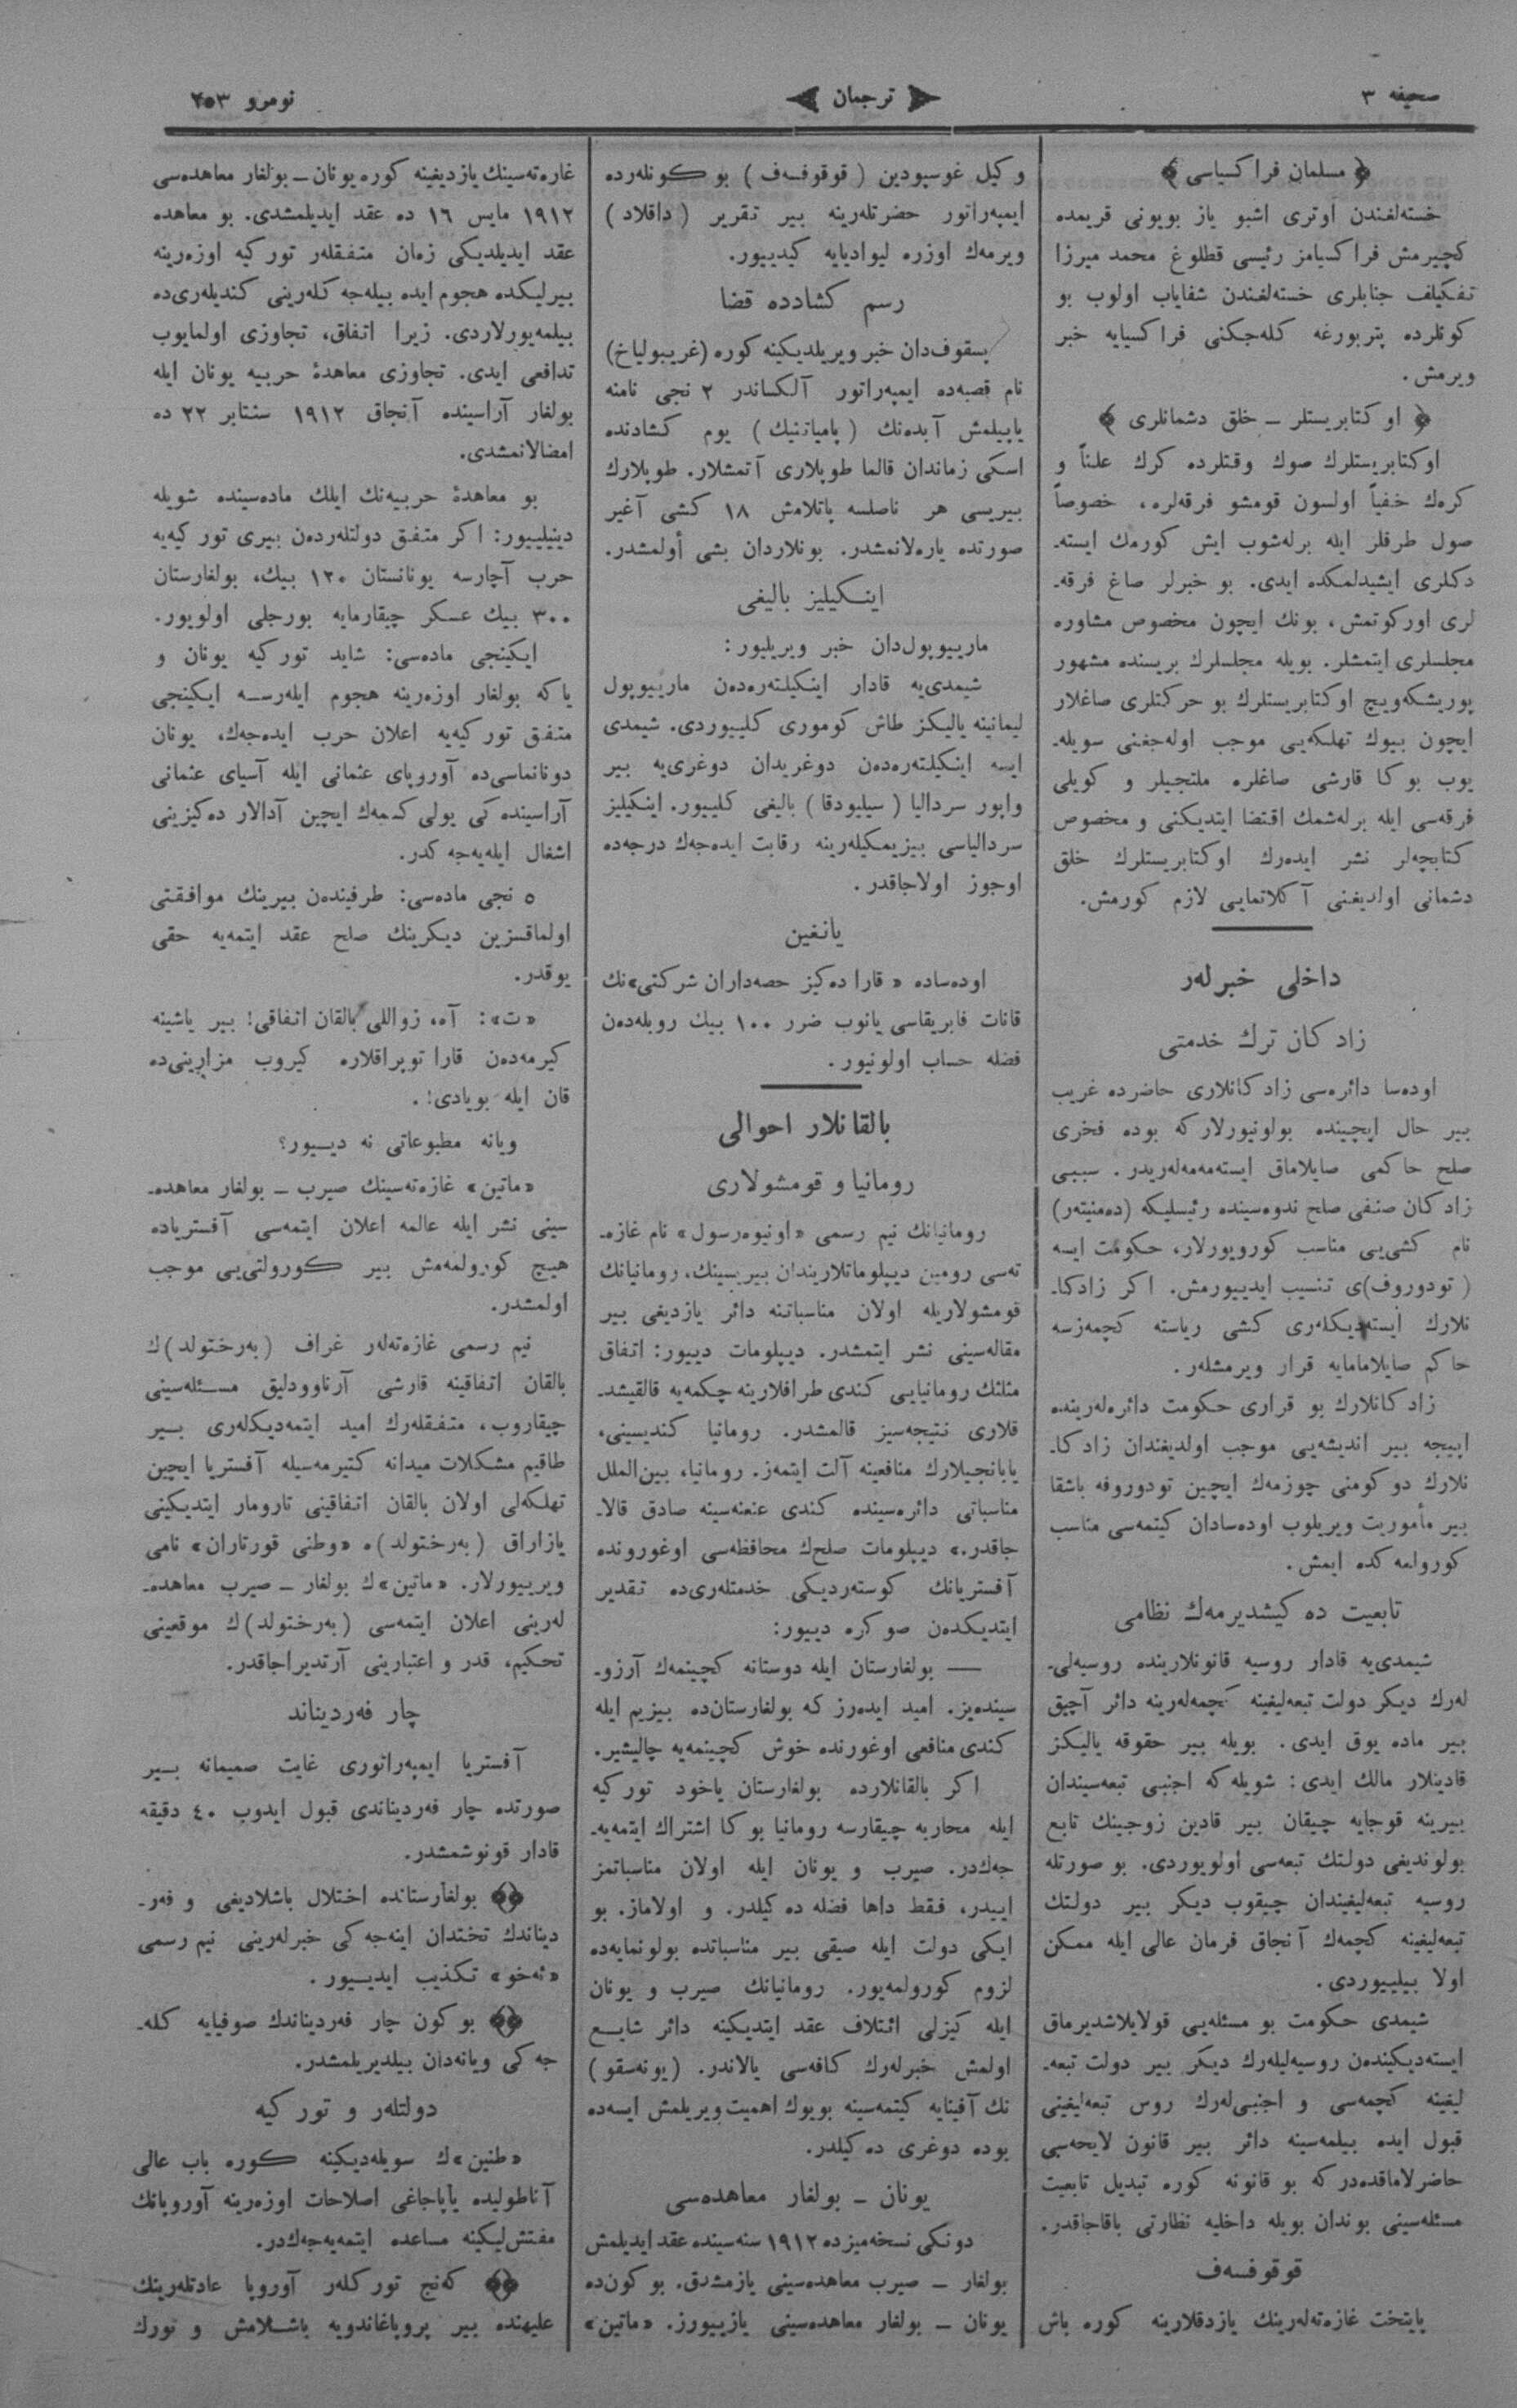 صحيفه ٣
ترجمان
نومرو ٢٥٣
﴿ مسلمان فراكسياسى ﴾
خسته‌لغندن آوترى اشبو ياز بويونى قريمده
كچيرمش فراكسيامز رئيسى قطلوغ محمد ميرزا
تفكيلف جنابلرى خسته‌لغندن شفاياب اولوب بو
كونلرده پتربورغه كله‌جكنى فراكسيايه خبر
ويرمش.
﴿ اوكتابريستلر ــ خلق دشمانلرى ﴾
اوكتابريستلرك صوك وقتلرده كرك علناً و
كره‌ك خفياً اولسون قومشو فرقه‌لره، خصوصاً
صول طرفلر ايله برله‌شوب ايش كورمك ايسته‌ـ
دكلرى ايشيدلمكده ايدى. بو خبرلر صاغ فرقه‌ـ
لرى اوركوتمش، بونك ايچون مخصوص مشاوره
مجلسلرى ايتمشلر. بويله مجلسلرك بريسنده مشهور
پوريشكه‌ويچ اوكتابريستلرك بو حركتلرى صاغلار
ايچون بيوك تهلكه‌يى موجب اوله‌جغنى سويله‌ـ
يوب بوكا قارشى صاغلره ملتجيلر و كويلى
فرقه‌سى ايله برله‌شمك اقتضا ايتديكنى و مخصوص
كتابچه‌لر نشر ايده‌رك اوكتابريستلرك خلق
دشمانى اولديغنى آكلاتمايى لازم كورمش.
داخلى خبرله‌ر
زادكان ترك خدمتى
اوده‌سا دائره‌سى زادكانلارى حاضرده غريب
بير حال ايچينده بولونيورلاركه بوده فخرى
صلح حاكمى صايلاماق ايسته‌مه‌مه‌له‌ريدر. سببى
زادكان صنفى صلح ندوه‌سينده رئيسليكه (ده‌منيته‌ر)
نام كشى‌يى مناسب كورويورلار، حكومت ايسه
(تودوروف)ى تنسيب ايدييورمش. اكر زادكاـ
نلارك ايسته‌ديكله‌رى كشى رياسته كچمه‌زسه
حاكم صايلامامايه قرار ويرمشله‌ر.
زادكانلارك بو قرارى حكومت دائره‌له‌رينده
اپيجه بير انديشه‌يى موجب اولديغندان زادكاـ
نلارك دوكومنى چوزمه‌ك ايچين تودوروفه باشقا
بير مأموريت ويريلوب اوده‌سادان كيتمه‌سى مناسب
كورولمه‌كده ايمش.
تابعيت ده‌كيشديرمه‌ك نظامى
شيمدى‌يه قادار روسيه قانونلارينده روسيه‌لى‌ـ
له‌رك ديكر دولت تبعه‌ليغينه كچمه‌له‌رينه دائر آچيق
بير ماده يوق ايدى. بويله بير حقوقه ياليكز
قادينلار مالك ايدى: شويله‌كه اجنبى تبعه‌سيندان
بيرينه قوجايه چيقان بير قادين زوجينك تابع
بولونديغى دولتك تبعه‌سى اولويوردى. بو صورتله
روسيه تبعه‌ليغيندان چيقوب ديكر بير دولتك
تبعه‌ليغينه كچمه‌ك آنجاق فرمان عالى ايله ممكن
اولا بيلييوردى.
شيمدى حكومت بو مسئله‌يى قولايلاشديرماق
ايسته‌ديكنده‌ن روسيه‌ليله‌رك ديكر بير دولت تبعه‌ـ
ليغينه كچمه‌سى و اجنبى‌له‌رك روس تبعه‌ليغينى
قبول ايده بيلمه‌سينه دائر بير قانون لايحه‌سى
حاضرلاماقده‌دركه بو قانونه كوره تبديل تابعيت
مسئله‌سينى بوندان بويله داخليه نظارتى باقاجاقدر.
قوقوفسه‌ف
پايتخت غازه‌ته‌له‌رينك يازدقلارينه كوره باش
وكيل غوسپودين (قوقوفسه‌ف) بو كونله‌رده
ايمپه‌راتور حضرتله‌رينه بير تقرير (داقلاد)
ويرمه‌ك اوزره ليواديايه كيدييور.
رسم كشادده قضا
پسقوف‌دان خبر ويريلديكينه كوره (غريبولياخ)
نام قصبه‌ده ايمپه‌راتور آلكساندر ٢ نجى نامنه
ياپيلمش آبده‌نك (پامياتنيك) يوم كشادنده
اسكى زماندان قالما طوپلارى آتمشلار. طوپلارك
بيريسى هر ناصلسه پاتلامش ١٨ كشى آغير
صورتده يارەلانمشدر. بونلاردان بشى أولمشدر.
اينكيليز باليغى
مارييوپول‌دان خبر ويريليور:
شيمدى‌يه قادار اينكيلته‌ره‌ده‌ن مارييوپول
ليمانينه ياليكز طاش كومورى كلييوردى. شيمدى
ايسه اينكيلته‌ره‌ده‌ن دوغريدان دوغرى‌يه بير
واپور سرداليا (سيليودقا) باليغى كلييور. اينكيليز
سردالياسى بيزيمكيله‌رينه رقابت ايده‌جه‌ك درجه‌ده
اوجوز اولاجاقدر.
يانغين
اوده‌ساده «قارا ده‌كيز حصه‌داران شركتى»نك
قانات فابريقاسى يانوب ضرر ١٠٠ بيك روبله‌ده‌ن
فضله حساب اولونيور.
بالقانلار احوالى
رومانيا و قومشولارى
رومانيانك نيم رسمى «اونيوه‌رسول» نام غازه‌ـ
ته‌سى رومين ديپلوماتلاريندان بيريسينك، رومانيانك
قومشولاريله اولان مناسباتنه دائر يازديغى بير
مقاله‌سينى نشر ايتمشدر. ديپلومات دييور: اتفاق
مثلثك رومانيايى كندى طرافلارينه چكمه‌يه قالقيشدـ
قلارى نتيجه‌سيز قالمشدر. رومانيا كنديسينى،
يابانجيلارك منافعينه آلت ايتمه‌ز. رومانيا، بين‌الملل
مناسباتى دائره‌سينده كندى عنعنه‌سينه صادق قالاـ
جاقدر.» ديپلومات صلحك محافظه‌سى اوغوروﻧده
آفستريانك كوستەرديكى خدمتله‌رى‌ده تقدير
ايتديكده‌ن صوكره دييور:
— بولغارستان ايله دوستانه كچينمه‌ك آرزوـ
سينده‌يز. اميد ايده‌رز كه بولغارستان‌ده بيزيم ايله
كندى منافعى اوغورنده خوش كچينمه‌يه چاليشير.
اكر بالقانلارده بولغارستان ياخود توركيه
ايله محاربه چيقارسه رومانيا بوكا اشتراك ايتمه‌يه‌ـ
جه‌ك‌در. صيرب و يونان ايله اولان مناسباتمز
اييدر، فقط داها فضله ده‌كيلدر. و اولاماز. بو
ايكى دولت ايله صيقى بير مناسباتده بولونمايه‌ده
لزوم كورولمه‌يور. رومانيانك صيرب و يونان
ايله كيزلى ائتلاف عقد ايتديكينه دائر شايـع
اولمش خبرله‌رك كافه‌سى يالاندر. (يونه‌سقو)
نك آفينايه كيتمه‌سينه بويوك اهميت ويريلمش ايسه‌ده
بوده دوغرى ده‌كيلدر.
يونان ــ بولغار معاهده‌سى
دونكى نسخه‌ميزده ١٩١٢ سنه‌سينده عقد ايديلمش
بولغار ــ صيرب معاهده‌سينى يازمشدق. بو كون‌ده
يونان ــ بولغار معاهده‌سينى يازييورز. «ماتين»
غازه‌ته‌سينك يازديغينه كوره يونان ــ بولغار معاهده‌سى
١٩١٢ مايس ١٦ ده عقد ايديلمشدى. بو معاهده
عقد ايديلديكى زمان متفقله‌ر توركيه اوزه‌رينه
بيرليكده هجوم ايده بيله‌جه‌كله‌رينى كنديله‌رى‌ده
بيلمه‌يورلاردى. زيرا اتفاق، تجاوزى اولمايوب
تدافعى ايدى. تجاوزى معاهدۀ حربيه يونان ايله
بولغار آراسينده آنجاق ١٩١٢ سنتابر ٢٢ ده
امضالانمشدى.
بو معاهدۀ حربيه‌نك ايلك ماده‌سينده شويله
دينيلييور: اكر متفق دولتله‌رده‌ن بيرى توركيه‌يه
حرب آچارسه يونانستان ١٢٠ بيك، بولغارستان
٣٠٠ بيك عسكر چيقارمايه بورجلى اولويور.
ايكينجى ماده‌سى: شايد توركيه يونان و
ياكه بولغار اوزه‌رينه هجوم ايله‌رسه ايكينجى
متفق توركيه‌يه اعلان حرب ايده‌جه‌ك، يونان
دونانماسى‌ده آوروپاى عثمانى ايله آسياى عثمانى
آراسينده‌كى يولى كسمه‌ك ايچين آدالار ده‌كيزينى
اشغال ايله‌يه‌جه‌كدر.
٥ نجى ماده‌سى: طرفينده‌ن بيرينك موافقتى
اولماقسزين ديكرينك صلح عقد ايتمه‌يه حقى
يوقدر.
«ت»: آه، زواللى بالقان اتفاقى! بير ياشينه
كيرمه‌ده‌ن قارا توپراقلاره كيروب مزارينى‌ده
قان ايله بويادى!.
ويانه مطبوعاتى نه دييور؟
«ماتين» غازه‌ته‌سينك صيرب ــ بولغار معاهده‌ـ
سينى نشر ايله عالمه اعلان ايتمه‌سى آفسترياده
هيچ كورولمه‌مش بير كورولتى‌يى موجب
اولمشدر.
نيم رسمى غازه‌ته‌له‌ر غراف (به‌رختولد)ك
بالقان اتفاقينه قارشى آرناوودليق مسئله‌سينى
چيقاروب، متفقله‌رك اميد ايتمه‌ديكله‌رى بـير
طاقيم مشكلات ميدانه كتيرمه‌سيله آفستريا ايچين
تهلكه‌لى اولان بالقان اتفاقينى تارومار ايتديكينى
يازاراق (به‌رختولد)ه «وطنى قورتاران» نامى
ويرييورلار. «ماتين»ك بولغار ــ صيرب معاهده‌ـ
له‌رينى اعلان ايتمه‌سى (به‌رختولد)ك موقعينى
تحكيم، قدر و اعتبارينى آرتديراجاقدر.
چار فه‌رديناند
آفستريا ايمپه‌راتورى غايت صميمانه بـير
صورتده چار فه‌رديناندى قبول ايدوب ٤٠ دقيقه
قادار قونوشمشدر.
﴿﴾ بولغارستانده اختلال باشلاديغى و فه‌رـ
ديناندك تختدان اينه‌جه‌كى خبرله‌رينى نيم رسمى
«ئه‌خو» تكذيب ايدييور.
﴿﴾ بو كون چار فه‌رديناندك صوفيايه كله‌ـ
جه‌كى ويانه‌دان بيلديريلمشدر.
دولتله‌ر و توركيه
«طنين»ك سويله‌ديكينه كوره باب عالى
آناطوليده ياپاجاغى اصلاحات اوزه‌رينه آوروپانك
مفتش‌ليكينه مساعده ايتمه‌يه‌جه‌ك‌در.
﴿﴾ كه‌نج توركله‌ر آوروپا عادتله‌رينك
عليهنده بير پروپاغاندويه باشلامش و تورك